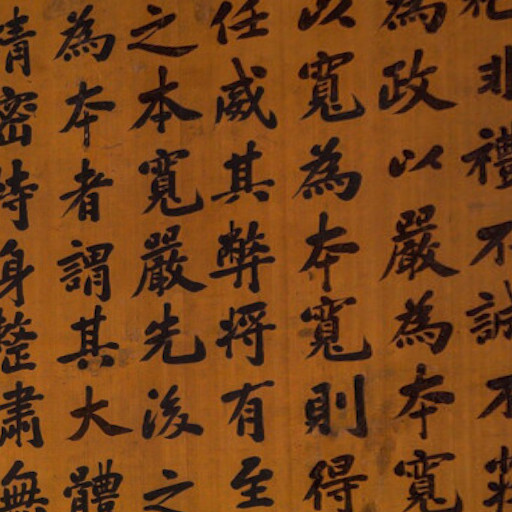 非禮不誠不莊
為政以嚴為本寬
以寬為本寬則得
任威其弊将有至
之本寬嚴先後之
為本者謂其大體
密持身整肅無